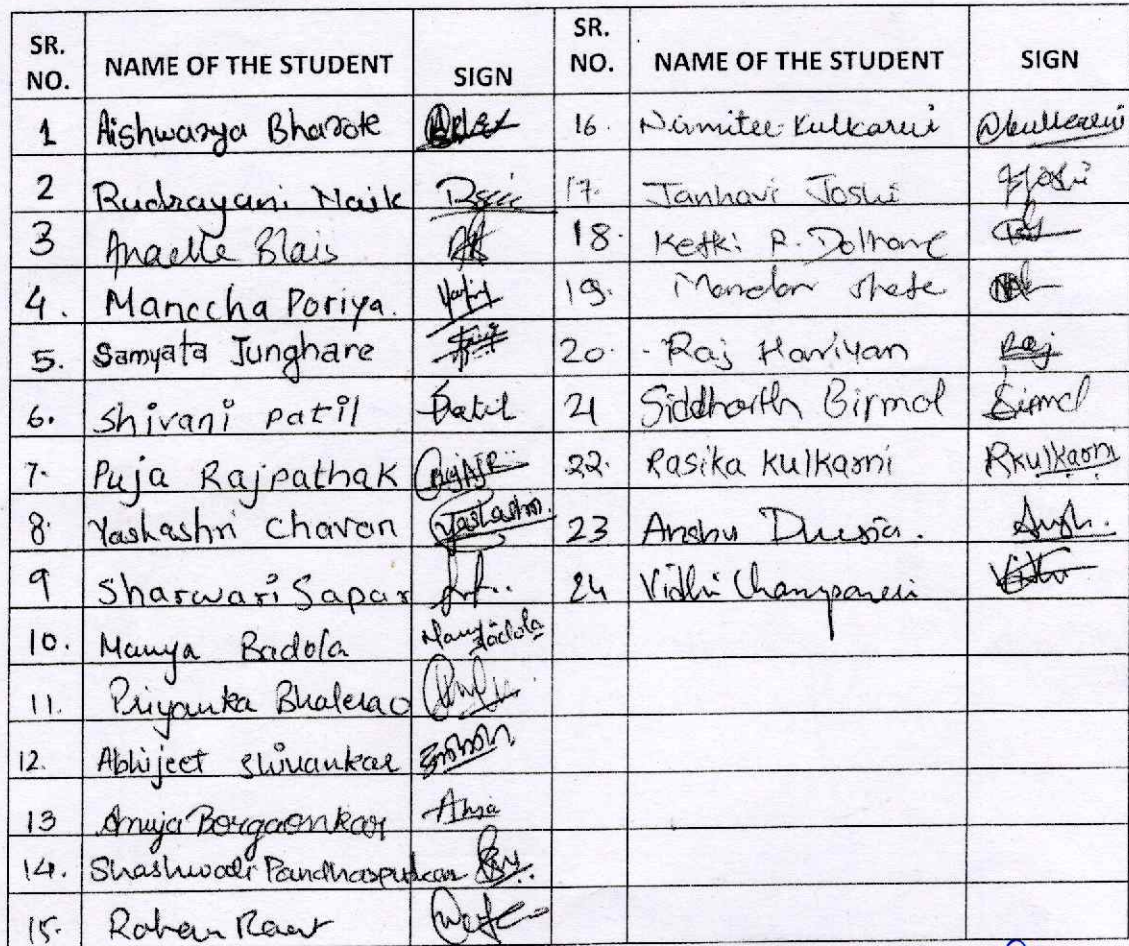 SR. NO. NAME OF THE STUDENT SIGN SR. NO. NAME OF THE STUDENT SIGN
1 Aishwarya Bharote 16. Nimitee Kulkarni Nkulkarni
2 Rudrayani Naik 17. Janhavi Joshi Joshi
3 Anaelle Blais 18. Ketki R. Dolhare
4. Manccha Poriya. 19. Mandar Shete
5. Samyata Junghare 20. Raj Hariyan Raj
6. Shivani patil Patil 21 Siddharth Birmol Birmol
7. Puja Rajpathak 22. Rasika Kulkarni Rkulkarni
8. Yashashri Chavan Yashashri. 23 Anshu Dhusia.
9 Sharwari Sapar 24 Vidhi Champaneri Vidhi
10. Manya Badola Manya Badola
11. Priyanka Bhalerao
12. Abhijeet Shivankar
13 Anuja Borgaonkar
14. Shashwati Pandharpurkar
15. Rohan Raut